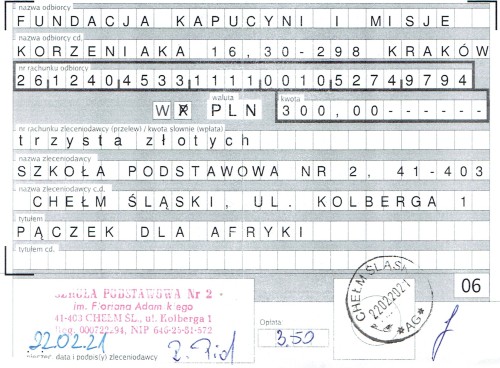 nazwa odbiorcy
FUNDACJA KAPUCYNI I MISJE
nazwa odbiorcy cd.
KORZENIAKA 16,30-298 KRAKÓW
nr rachunku odbiorcy
26124045331111001052749794
waluta kwota
W PLN 300,00------
nr rachunku zleceniodawcy (przelew) / kwota słownie (wpłata)
trzysta złotych
nazwa zleceniodawcy
SZKOŁA PODSTAWOWA NR 2, 41-403
nazwa zleceniodawcy c.d.
CHEŁM ŚLĄSKI, UL. KOLBERGA 1
tytułem
PĄCZEK DLA AFRYKI
tytułem cd.
06
SZKOŁA PODSTAWOWA Nr 2
im. Floriana Adam
41-403 CHEŁM ŚL., ul. Kolberga 1
NIP 646-25-51-572
22.02.21
data i podpis(y) zleceniodawcy
Opłata
3,50
CHEŁM ŚLĄSK
*AG*